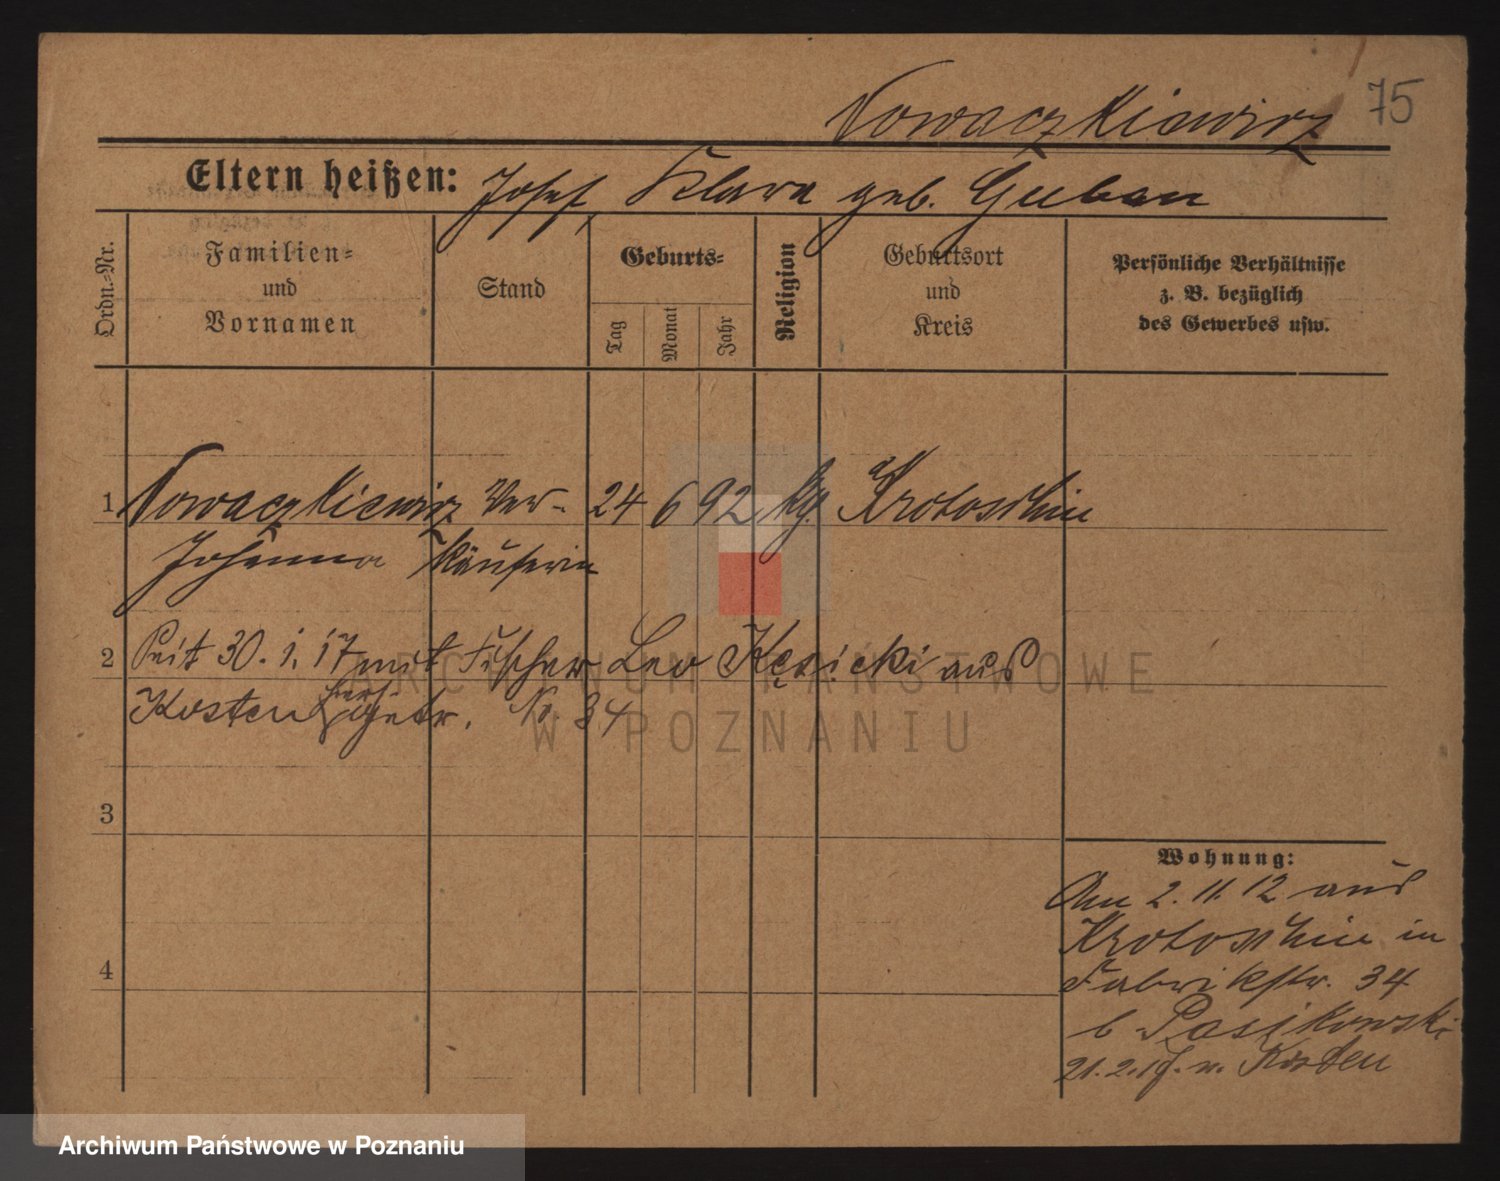 Nowaczkiewicz 75
Eltern heißen: Josef, Klara geb. Guben
Ordn.-Nr.
Familien-
und
Vornamen
Stand
Geburts-
Tag
Monat
Jahr
Religion
Geburtsort
und
Kreis
Persönliche Verhältnisse
z. B. bezüglich
des Gewerbes usw.
1 Nowaczkiewicz Ver- 24 6 92 kg. Krotoschin
Johanna käuferin
2 Seit 30. 1. 17 mit Fischer Leo Kęsicki aus
Kosten verh. No. 34
3
4
Wohnung:
Am 2. 11. 12 aus
Krotoschin in
Fabrikstr. 34
b. Pasikowski
21. 2. n. Kosten
ARCHIWUM PAŃSTWOWE
W POZNANIU
Archiwum Państwowe w Poznaniu